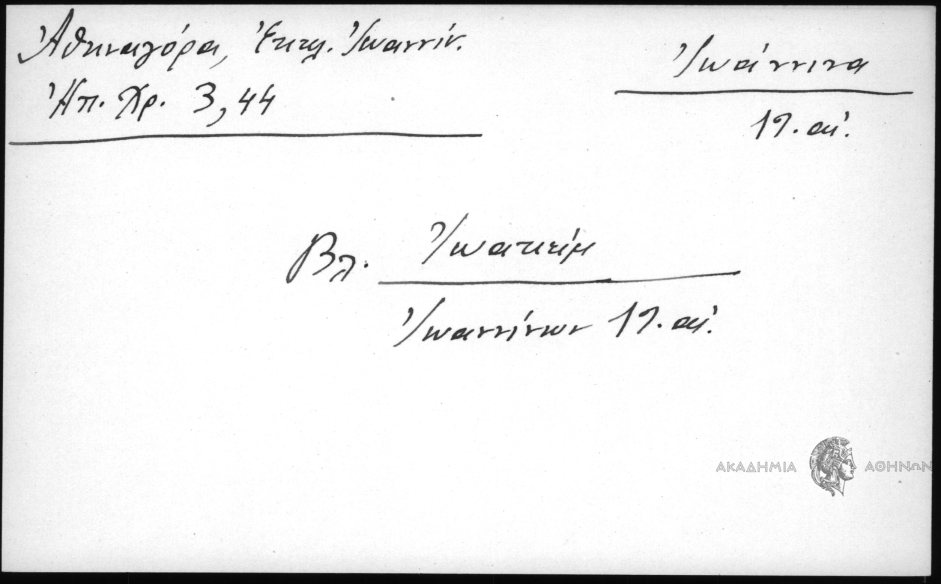 Ἀθηναγόρα, Ἐκκλ. Ἰωαννίν.
Ἠπ. Χρ. 3, 44
Ἰωάννινα
19. αἰ.
Βλ. Ἰωακείμ
Ἰωαννίνων 19. αἰ.
ΑΚΑΔΗΜΙΑ ΑΘΗΝΩΝ